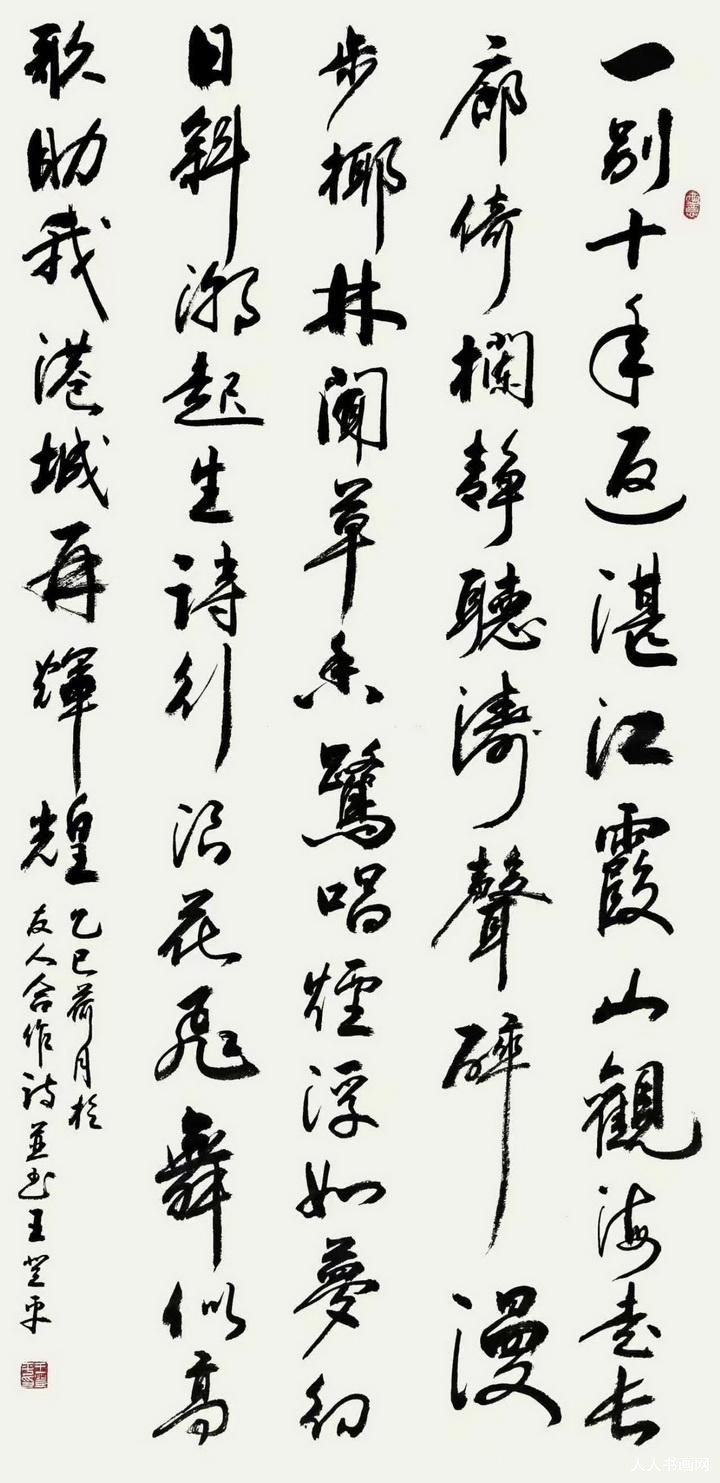 一别十年返湛江霞山觀海走长
廊倚欄静聽濤聲碎漫
步椰林聞草香鷺唱煙浮如夢幻
日斜潮起生詩行浪花飛舞似高
歌助我港城再輝煌
乙巳荷月於
友人合作诗並书王登平
人人书画网